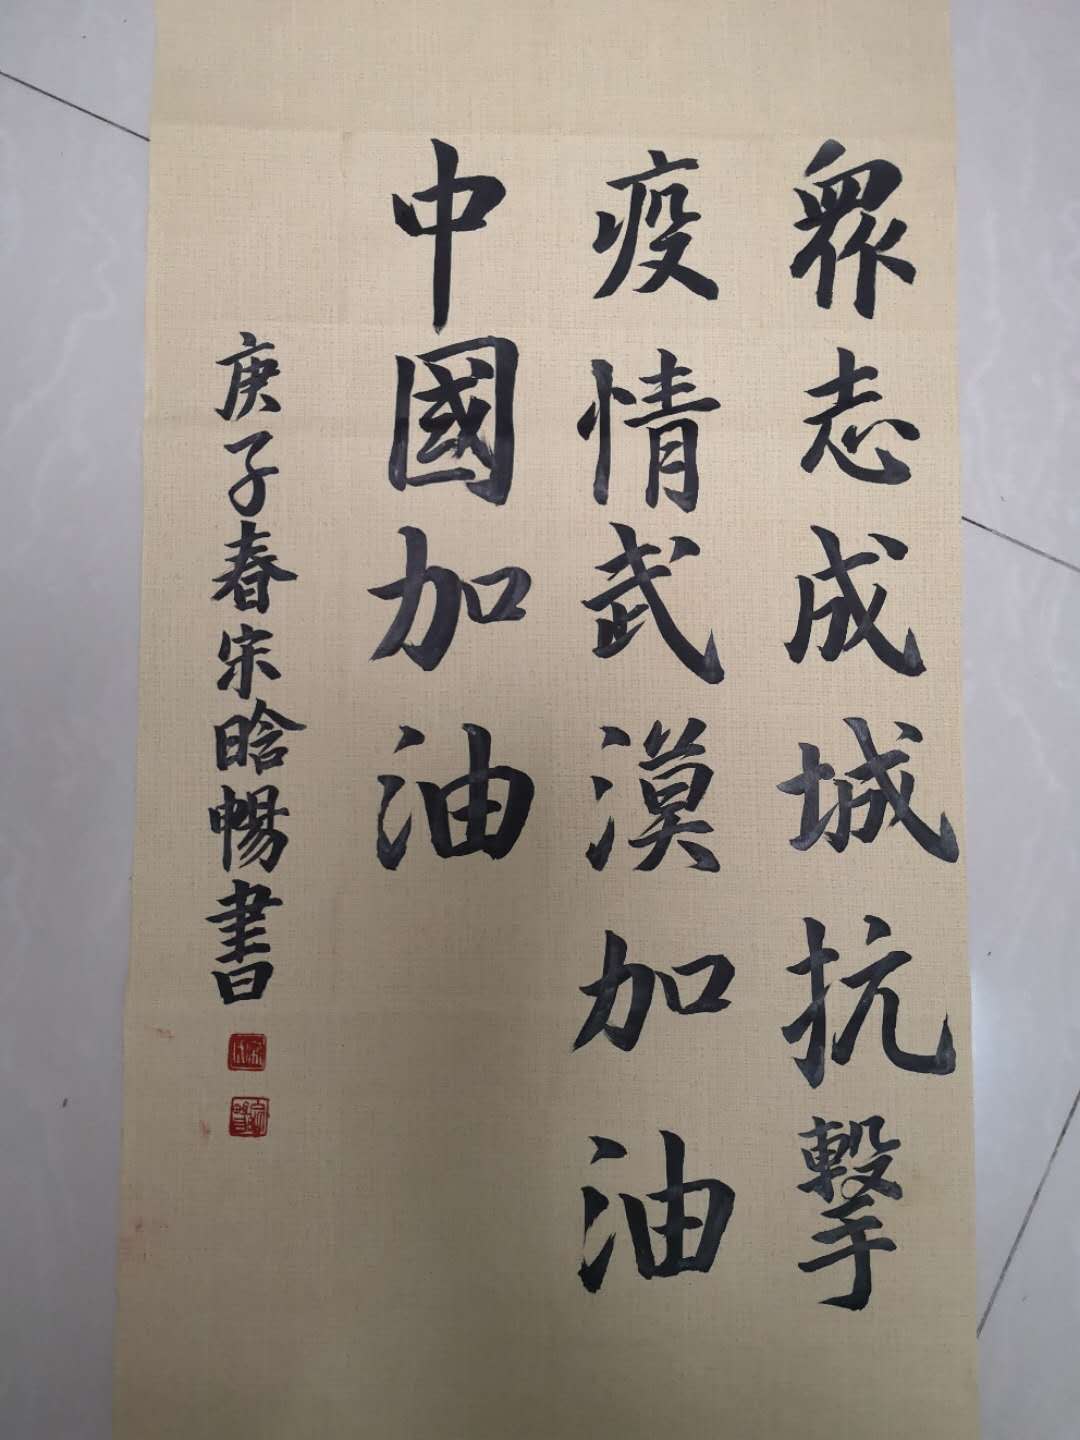 眾志成城抗擊
疫情武漠加油
中國加油
庚子春宋晗暢書